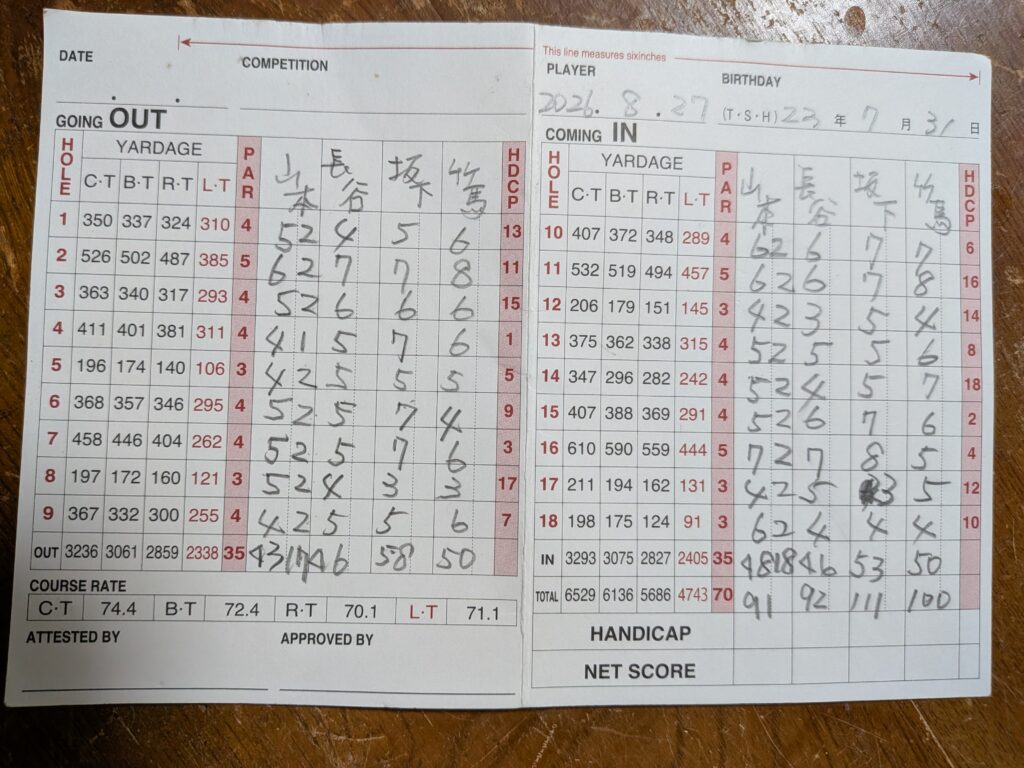 DATE
COMPETITION
GOING OUT
HOLE YARDAGE PAR 山本 長谷 坂下 竹馬 HDCP
C·T B·T R·T L·T
1 350 337 324 310 4 5 2 4 5 6 13
2 526 502 487 385 5 6 2 7 7 8 11
3 363 340 317 293 4 5 2 6 6 6 15
4 411 401 381 311 4 4 1 5 7 6 1
5 196 174 140 106 3 4 2 5 5 5 5
6 368 357 346 295 4 5 2 5 7 4 9
7 458 446 404 262 4 5 2 5 7 6 3
8 197 172 160 121 3 5 2 4 3 3 17
9 367 332 300 255 4 4 2 5 5 6 7
OUT 3236 3061 2859 2338 35 43 17 46 58 50
COURSE RATE
C·T 74.4 B·T 72.4 R·T 70.1 L·T 71.1
ATTESTED BY
APPROVED BY
This line measures sixinches
PLAYER
BIRTHDAY
2026.8.27 (T·S·H) 23 年 7 月 31 日
COMING IN
HOLE YARDAGE PAR 山本 長谷 坂下 竹馬 HDCP
C·T B·T R·T L·T
10 407 372 348 289 4 6 2 6 7 7 6
11 532 519 494 457 5 6 2 6 7 8 16
12 206 179 151 145 3 4 2 3 5 4 14
13 375 362 338 315 4 5 2 5 5 6 8
14 347 296 282 242 4 5 2 4 5 7 18
15 407 388 369 291 4 5 2 6 7 6 2
16 610 590 559 444 5 7 2 7 8 5 4
17 211 194 162 131 3 4 2 5 3 5 12
18 198 175 124 91 3 6 2 4 4 4 10
IN 3293 3075 2827 2405 35 48 18 46 53 50
TOTAL 6529 6136 5686 4743 70 91 92 111 100
HANDICAP
NET SCORE